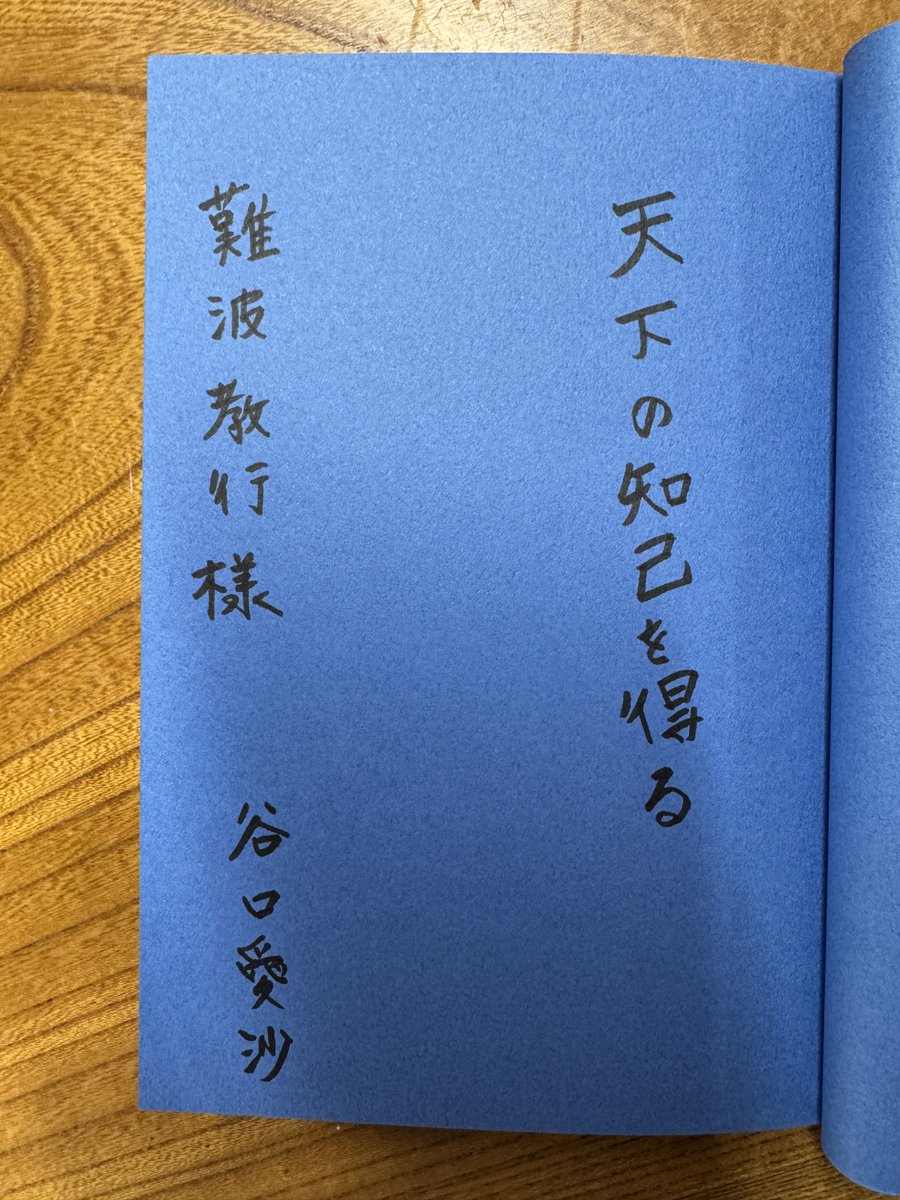 天下の知己を得る
難波教行様
谷口愛沙